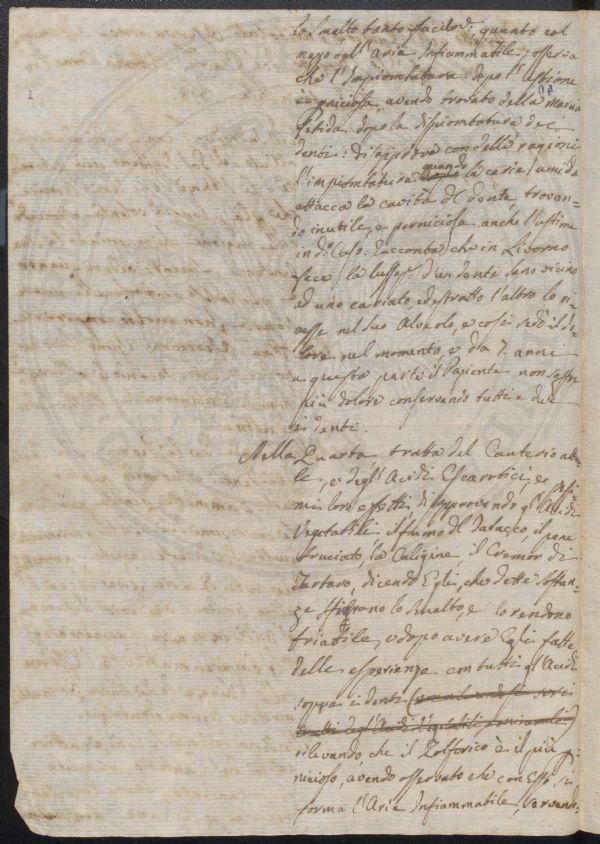 lo Smalto tanto facilm.e quanto col
mezzo dell'Aria Infiammabile; osserva
che l'Impiombatura dopo l'ustione
è perniciosa, avendo trovato della marcia
fetida dopo la dispiombatura dei
denti: disapprova con delle ragioni
l'impiombatura quando la carie umida
attacca la cavità del dente, trovan=
do inutile, e perniciosa anche l'ustione
in d.o Caso. Racconta, che in Livorno
fece la d'un dente sano vicino
ad uno cariato, ed estratto l'altro lo ri=
messe nel suo Alveolo, e così sedò il do=
lore nel momento, e da 7. anni
a questa parte il Paziente non soffrì
più dolore conservando tutti e due
i denti.
Nella Quarta tratta del Cauterio attua=
le, e degl'Acidi Escarotici, e
loro effetti, disapprovando gl'Acidi
Vegetabili il fumo del Tabacco, il pane
bruciato, la Caligine, il Cremor di
Tartaro, dicendo Egli, che dette sostan=
ze sfibrano lo Smalto, e lo rendono
friabile, e dopo avere Egli fatte
delle esperienze con tutti gl'Acidi
sopra i denti
rilevando, che il Zolforico è il più per=
nicioso, avendo osservato che con Esso si
forma l'Aria Infiammabile,